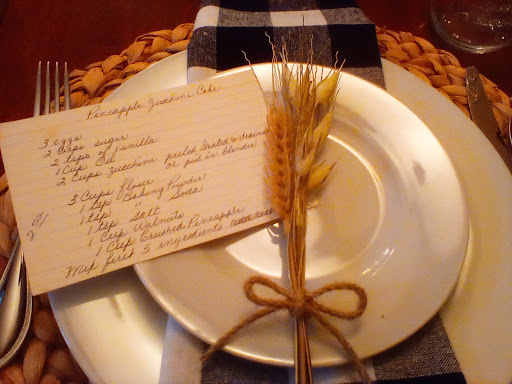 Pineapple Zucchini Cake
3 eggs
2 Cups sugar
2 tsps of Vanilla
1 Cup Oil
2 Cups zucchini peeled, Grated & drained
or put in blender
3 Cups flour
1 tsp Baking Powder
1 tsp " Soda
1 tsp Salt
1 Cup Walnuts
1 Cup Crushed Pineapple
Mix first 5 ingredients, add